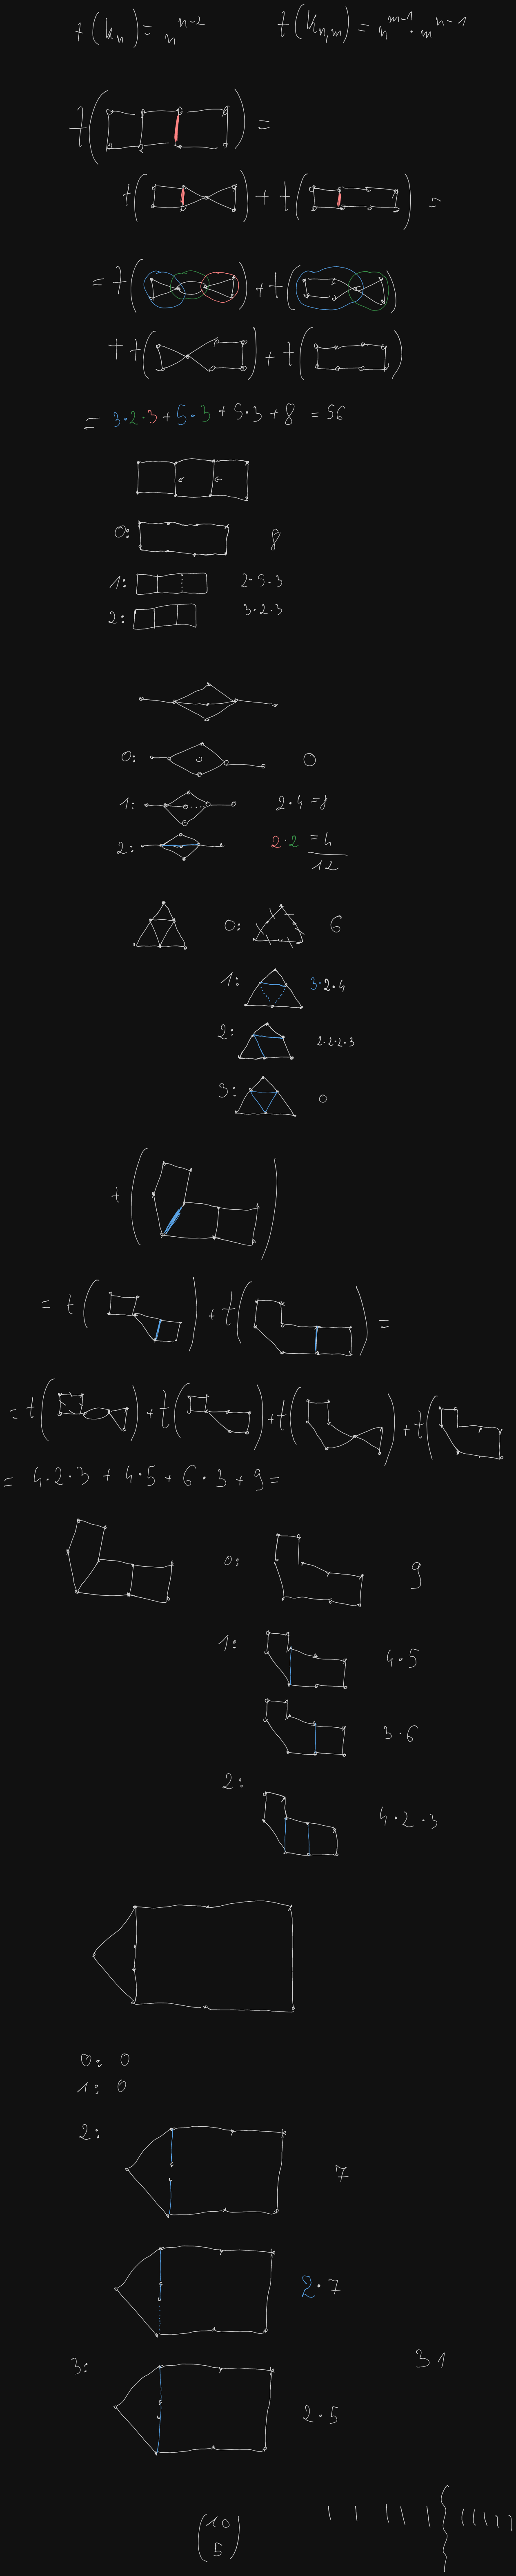 t(kₙ) = nⁿ⁻² t(Kₙ,ₘ) = nᵐ⁻¹ · mⁿ⁻¹
t( ) =
t( ) + t( ) =
= t( ) + t( )
+ t( ) + t( )
= 3·2·3 + 5·3 + 5·3 + 8 = 56
0: 8
1: 2·5·3
2: 3·2·3
0: 0
1: 2·4 = 8
2: 2·2 = 4
12
0: 6
1: 3·2·4
2: 2·2·2·3
3: 0
t( )
= t( ) + t( ) =
= t( ) + t( ) + t( ) + t( )
= 4·2·3 + 4·5 + 6·3 + 9 =
0: 9
1: 4·5
3·6
2: 4·2·3
0: 0
1: 0
2: 7
2·7
3: 31
2·5
(10
5)